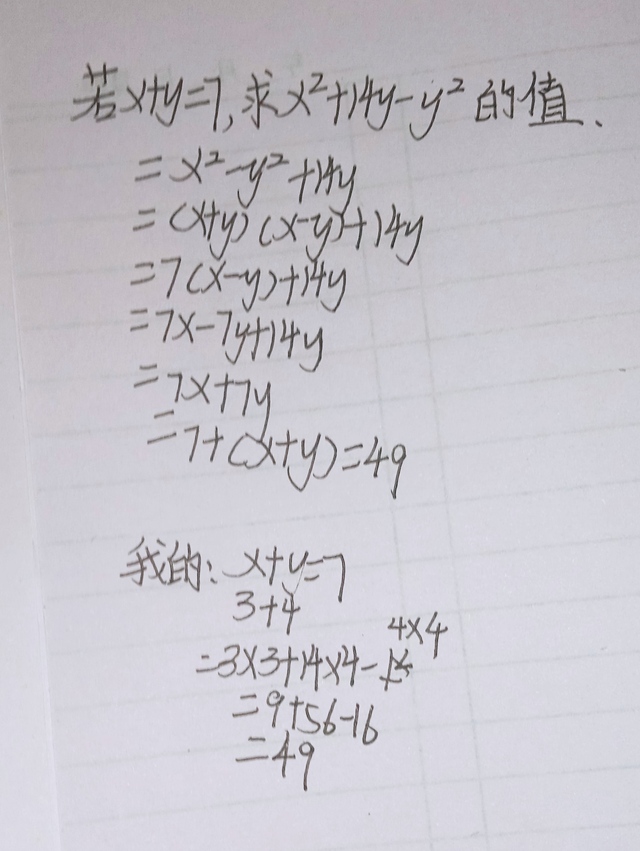 若x+y=7,求x²+14y-y²的值.
=x²-y²+14y
=(x+y)(x-y)+14y
=7(x-y)+14y
=7x-7y+14y
=7x+7y
=7+(x+y)=49
我的: x+y=7
3+4
4×4
=3×3+14×4-
=9+56-16
=49